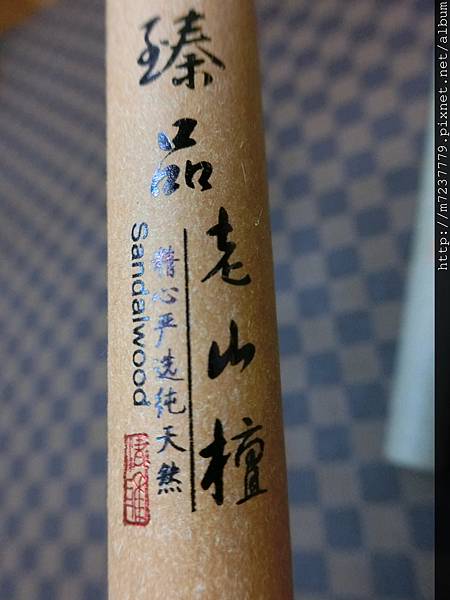 臻品
老山檀
精心严选纯天然
Sandalwood
http://m7237779.pixnet.net/album